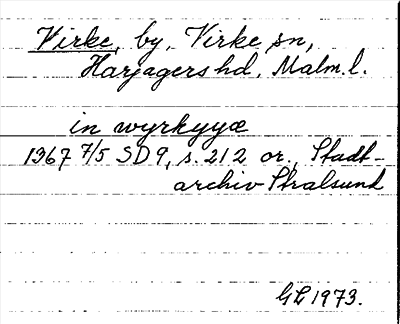 Virke, by, Virke sn,
Harjagers hd, Malm. l.
in wyrkyyæ
1367 7/5 SD 9, s. 212 or., Stadt-
archiv Stralsund
GL 1973.